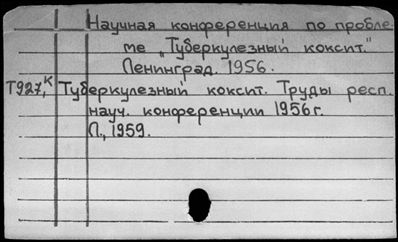 Научная конференция по пробле-
ме „Туберкулезный коксит."
Ленинград. 1956.
Т927,к Туберкулезный коксит. Труды респ.
науч. конференции 1956 г.
Л., 1959.